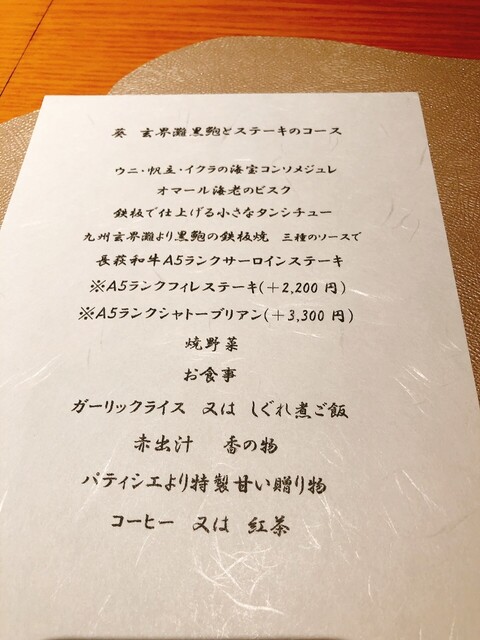 葵 玄界灘黒鮑とステーキのコース
ウニ・帆立・イクラの海宝コンソメジュレ
オマール海老のビスク
鉄板で仕上げる小さなタンシチュー
九州玄界灘より黒鮑の鉄板焼 三種のソースで
長萩和牛A5ランクサーロインステーキ
※A5ランクフィレステーキ(＋2,200 円)
※A5ランクシャトーブリアン(＋3,300 円)
焼野菜
お食事
ガーリックライス 又は しぐれ煮ご飯
赤出汁 香の物
パティシエより特製甘い贈り物
コーヒー 又は 紅茶